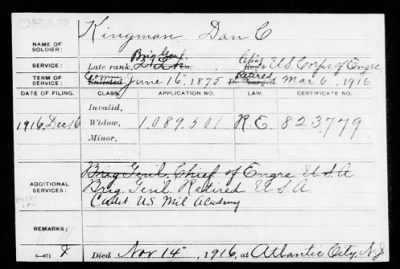 Kingman Dan C
NAME OF SOLDIER:
Brig Genl. Chief
SERVICE: Late rank, U.S. Corps of Engrs
TERM OF SERVICE: Enlisted June 16", 1875 Retired Mar 6, 1916
DATE OF FILING. CLASS. APPLICATION NO. LAW. CERTIFICATE NO.
Invalid,
1916 Dec 16 Widow, 1,089,501 R.E. 823,779
Minor,
ADDITIONAL SERVICES:
Brig Genl. Chief of Engrs U.S.A
Brig. Genl Retired U.S.A.
Cadet US Mil Academy
REMARKS:
Died Nov 14", 1916, at Atlantic City, N.J